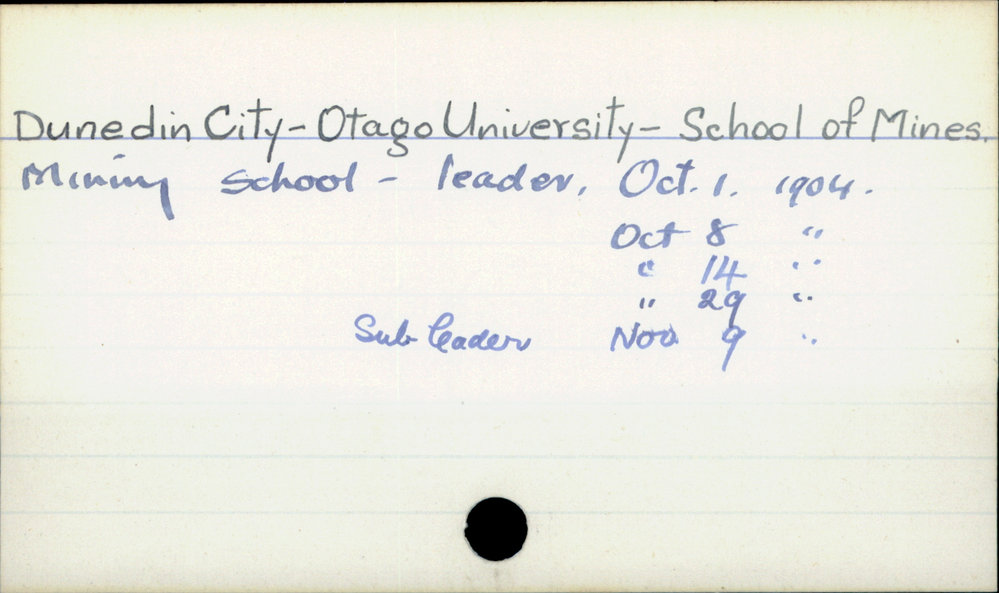 Dunedin City - Otago University - School of Mines.
Mining School - leader, Oct. 1. 1904.
Oct 8 "
" 14 "
" 29 "
Sub leader Nov 9 "